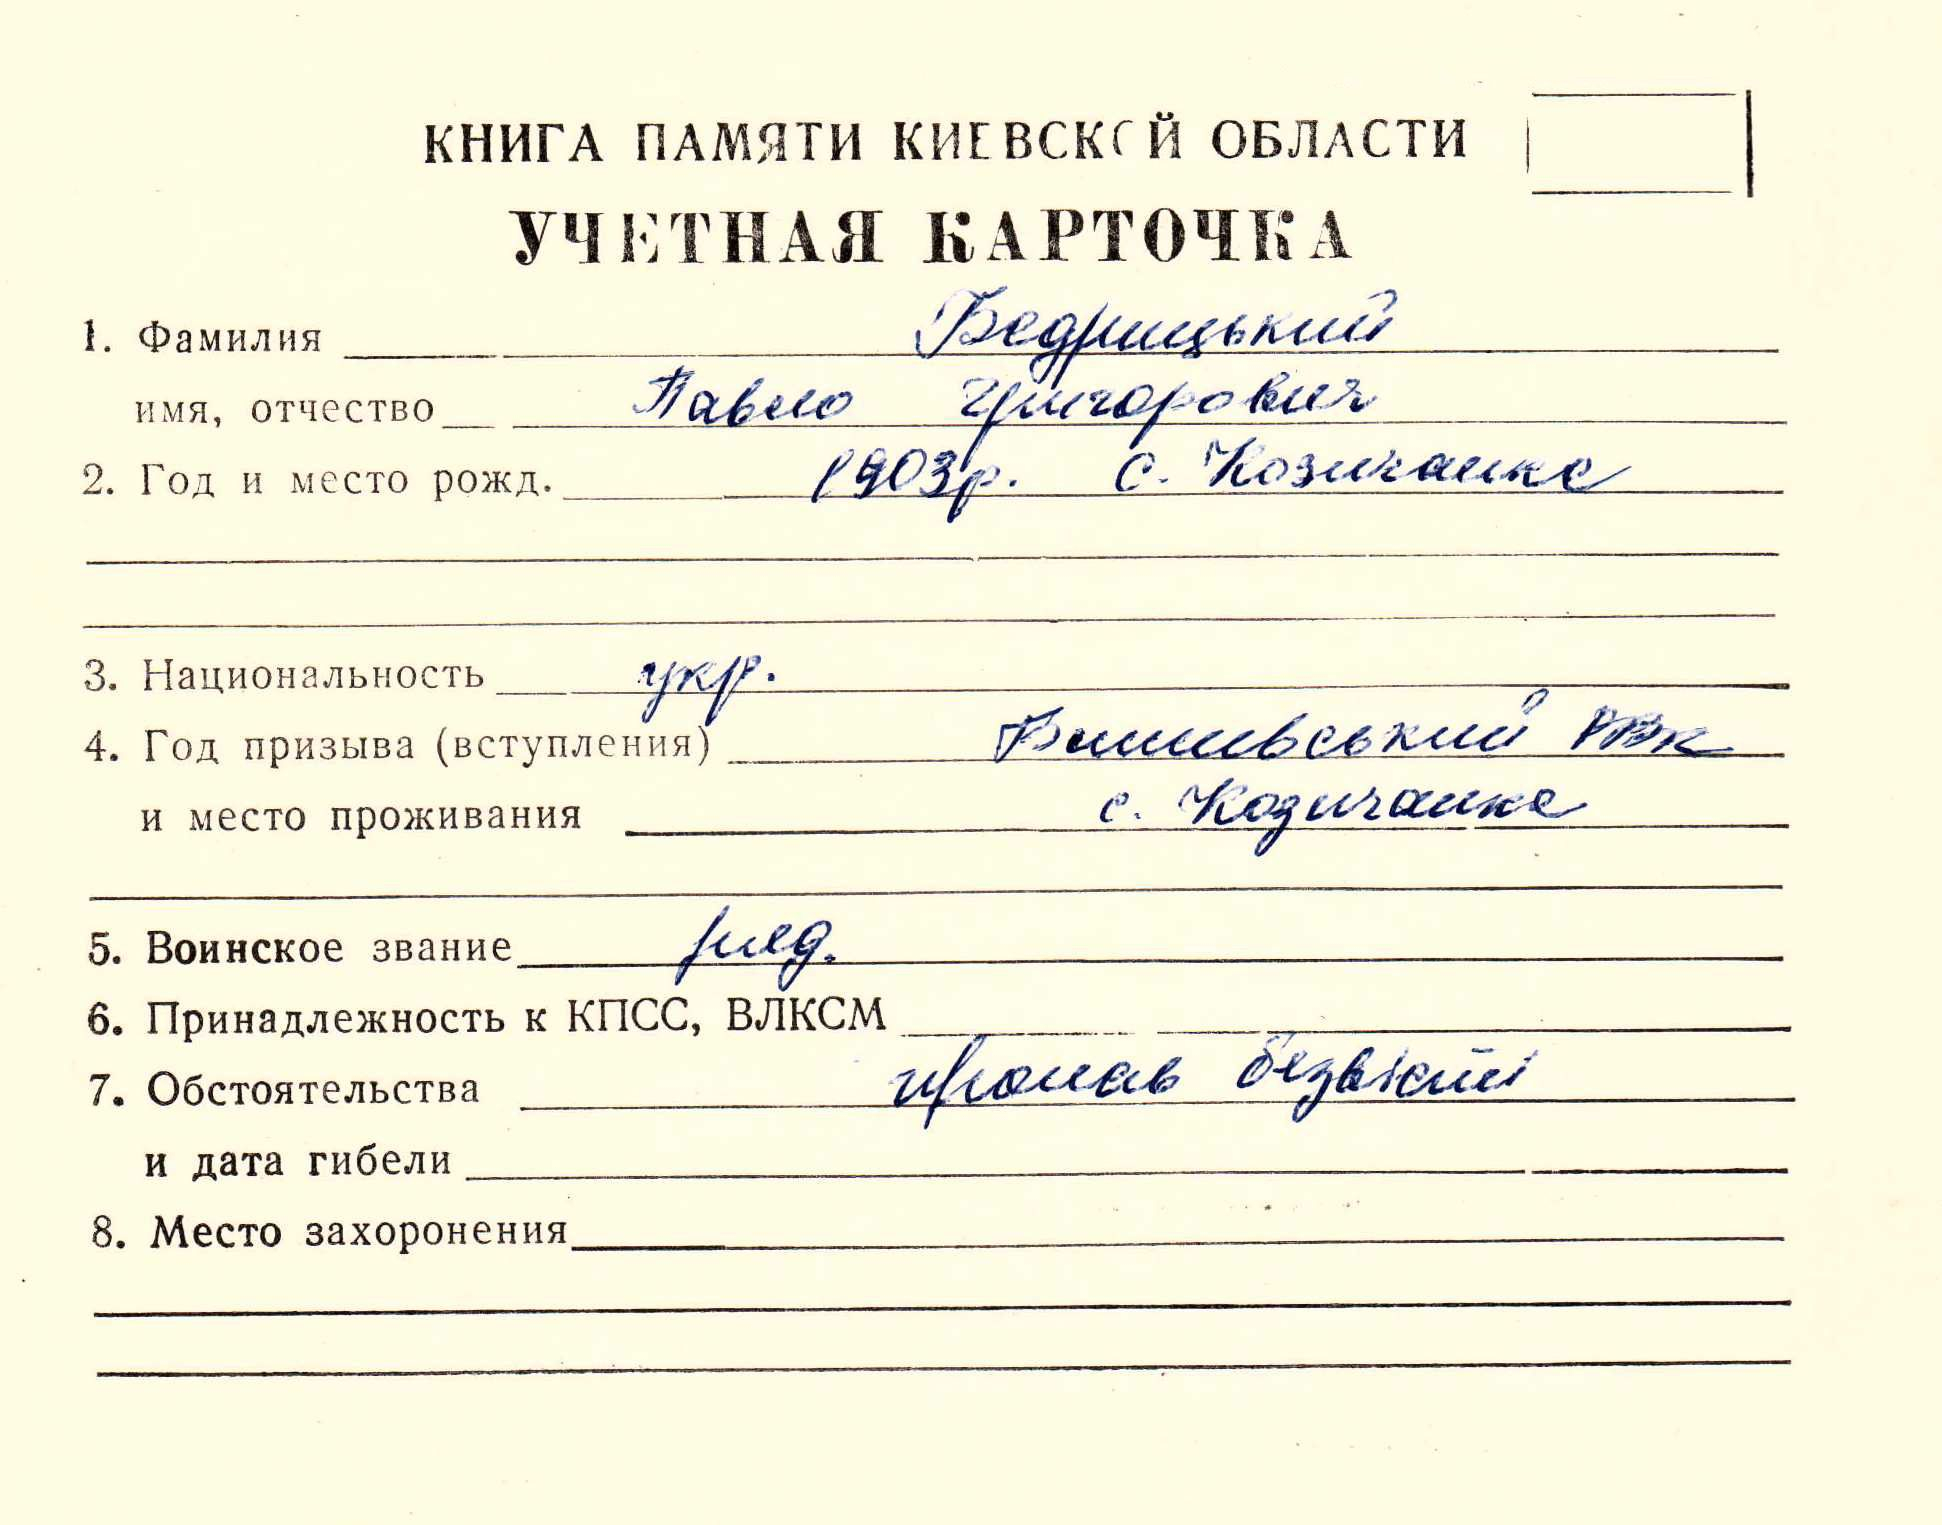 КНИГА ПАМЯТИ КИЕВСКОЙ ОБЛАСТИ
УЧЕТНАЯ КАРТОЧКА
1. Фамилия Бедрицький
имя, отчество Павло Григорович
2. Год и место рожд. 1903р. с. Козичанка
3. Национальность укр.
4. Год призыва (вступления) РВК
и место проживания с. Козичанка
5. Воинское звание ряд.
6. Принадлежность к КПСС, ВЛКСМ
7. Обстоятельства пропав безвісті
и дата гибели
8. Место захоронения